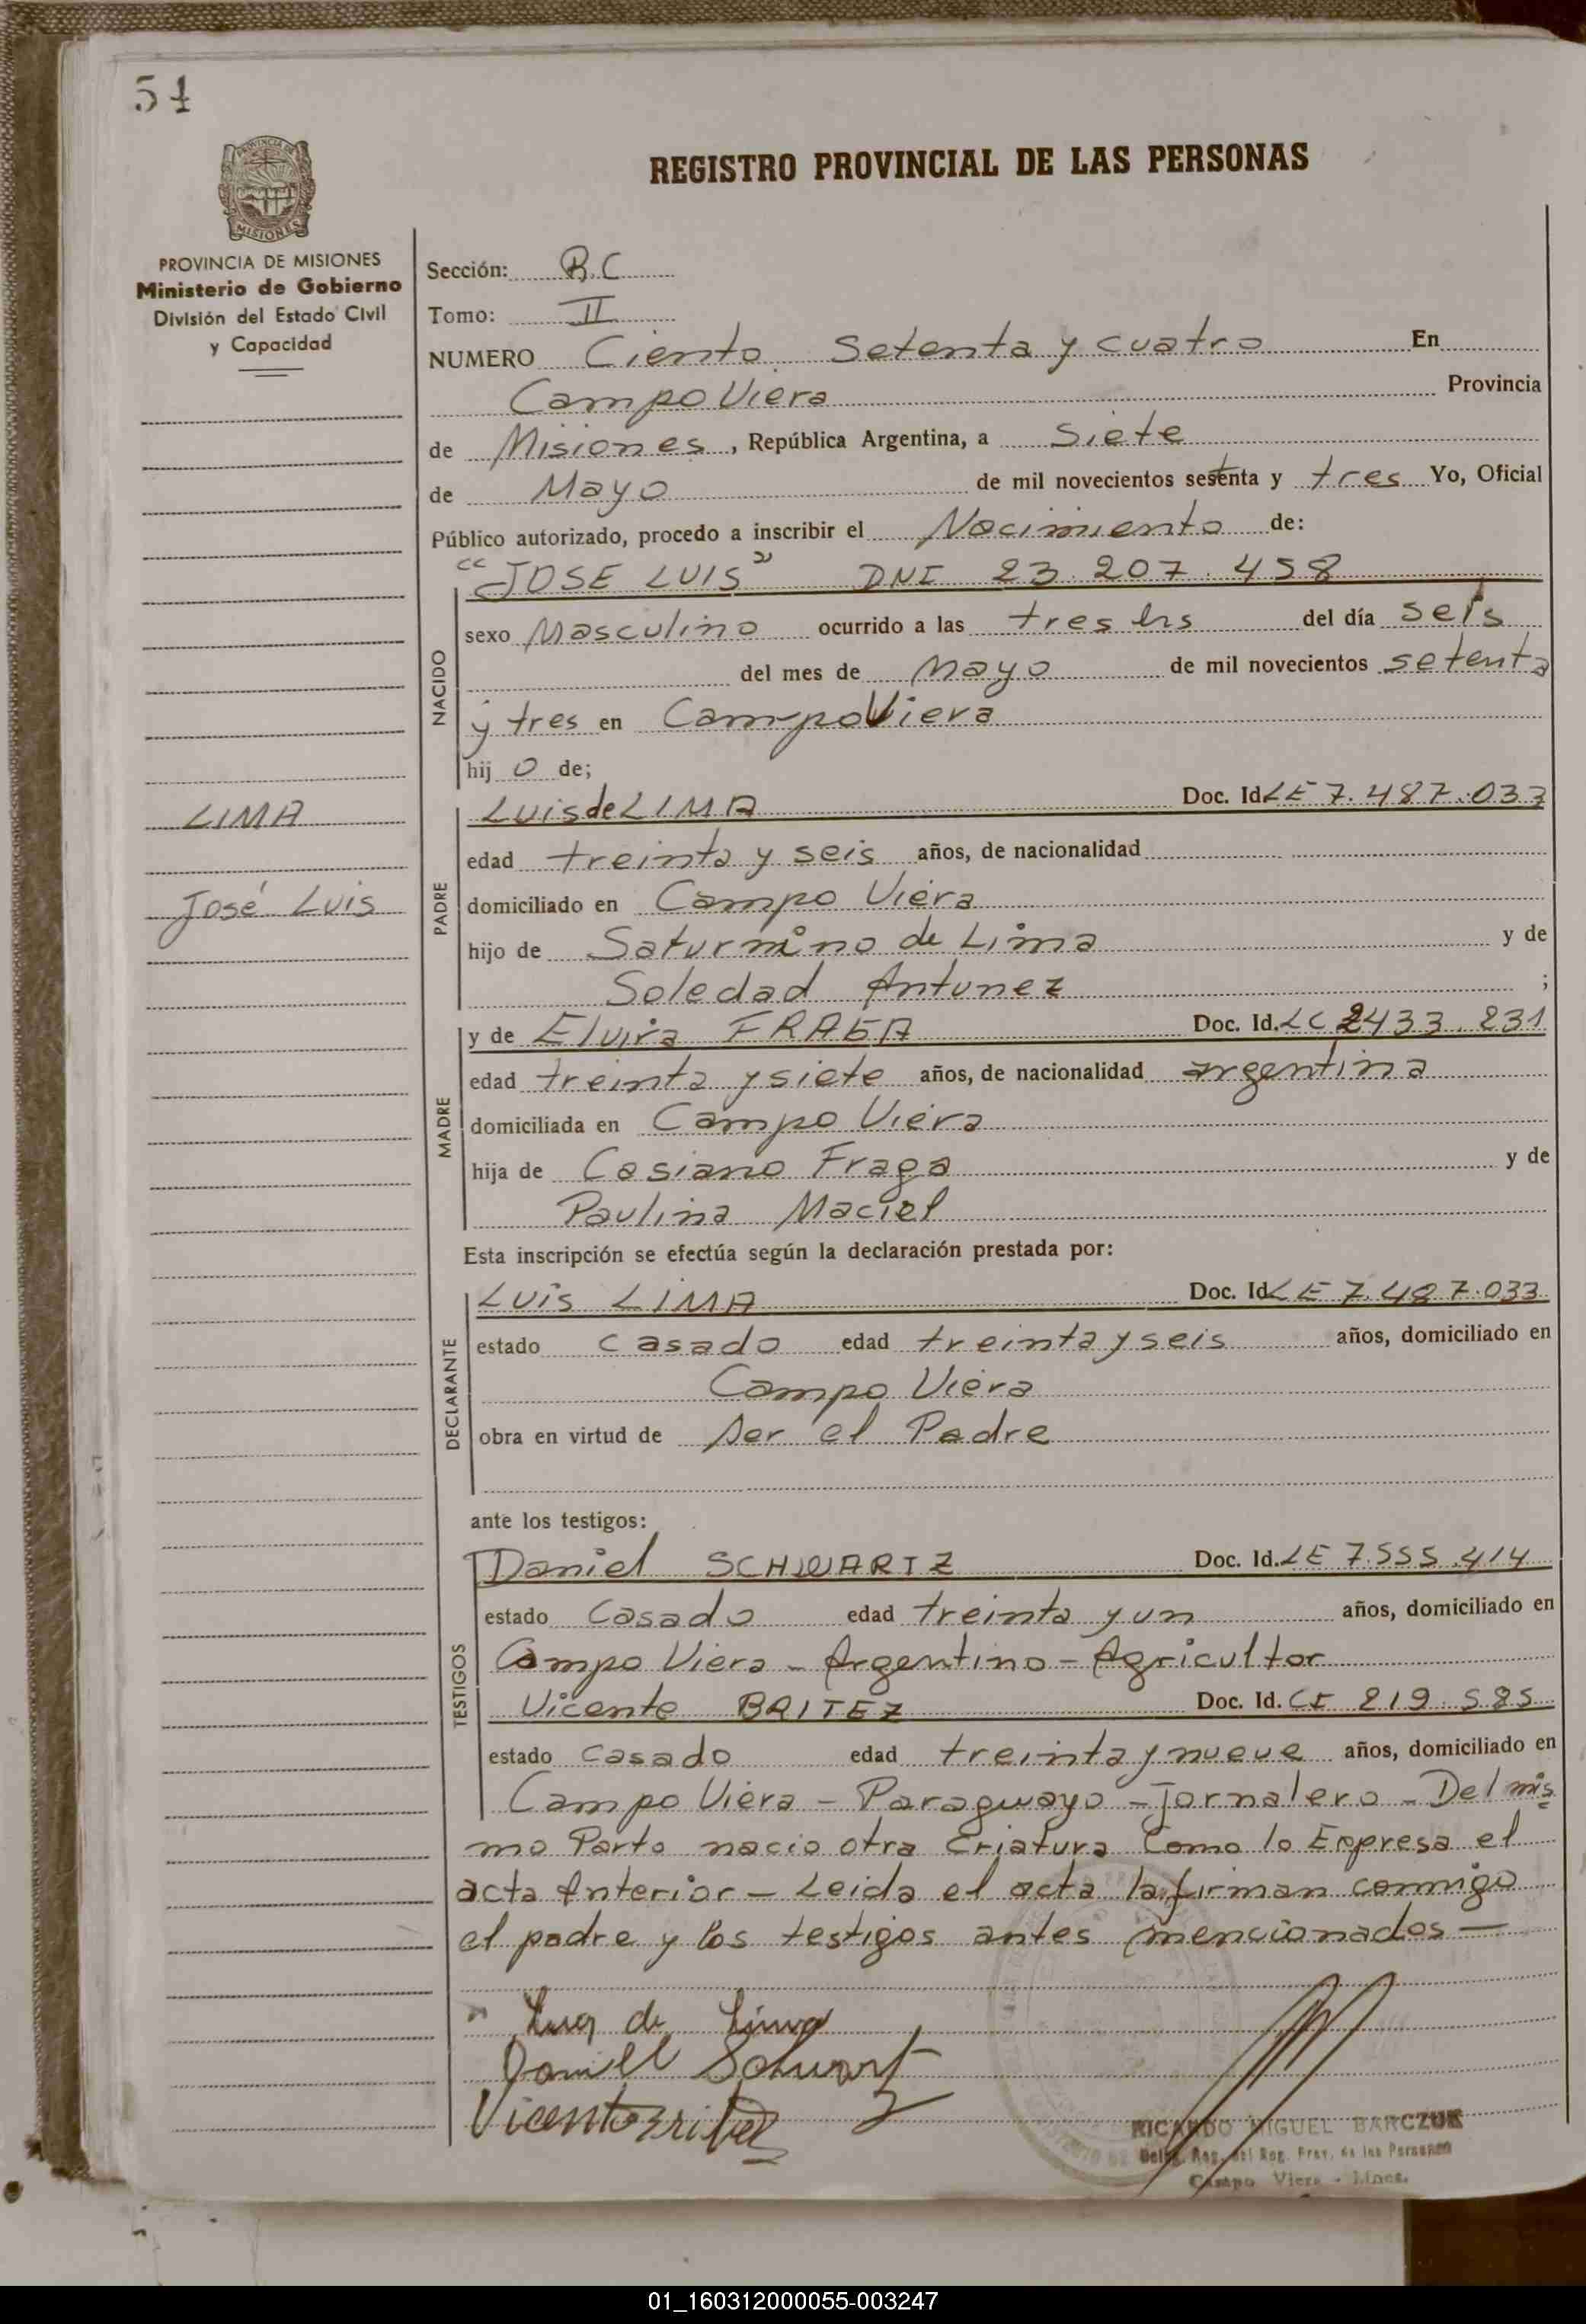 54
REGISTRO PROVINCIAL DE LAS PERSONAS
PROVINCIA DE MISIONES
Ministerio de Gobierno
División del Estado Civil
y Capacidad
LIMA
José Luis
Sección: R.C
Tomo: II
NUMERO Ciento Setenta y cuatro En
Campo Viera Provincia
de Misiones, República Argentina, a Siete
de Mayo de mil novecientos setenta y tres Yo, Oficial
Público autorizado, procedo a inscribir el Nacimiento de:
"JOSE LUIS" DNI 23.207.458
NACIDO
sexo Masculino ocurrido a las tres hs del día seis
del mes de Mayo de mil novecientos setenta
y tres en Campo Viera
hij o de;
PADRE
Luis de LIMA Doc. Id LE 7.487.033
edad treinta y seis años, de nacionalidad
domiciliado en Campo Viera
hijo de Saturnino de Lima y de
Soledad Antunez ;
MADRE
y de Elvira FRAGA Doc. Id. LC 2433.231
edad treinta y siete años, de nacionalidad argentina
domiciliada en Campo Viera
hija de Casiano Fraga y de
Paulina Maciel
Esta inscripción se efectúa según la declaración prestada por:
DECLARANTE
Luis LIMA Doc. Id LE 7.487.033
estado casado edad treinta y seis años, domiciliado en
Campo Viera
obra en virtud de ser el Padre
ante los testigos:
TESTIGOS
Daniel SCHWARTZ Doc. Id. LE 7.555.414
estado Casado edad treinta y un años, domiciliado en
Campo Viera - Argentino - Agricultor
Vicente BRITEZ Doc. Id. CI 219.585
estado casado edad treinta y nueve años, domiciliado en
Campo Viera - Paraguayo - Jornalero - Del mis
mo Parto nacio otra Criatura Como lo Expresa el
acta Anterior - Leida el acta la firman conmigo
el padre y los testigos antes mencionados -
Luis de Lima
Daniel Schwartz
Vicente Britez
RICARDO MIGUEL BARCZUK
Deleg. Reg. del Reg. Prov. de las Personas
Campo Viera - Mnes.
01_160312000055-003247